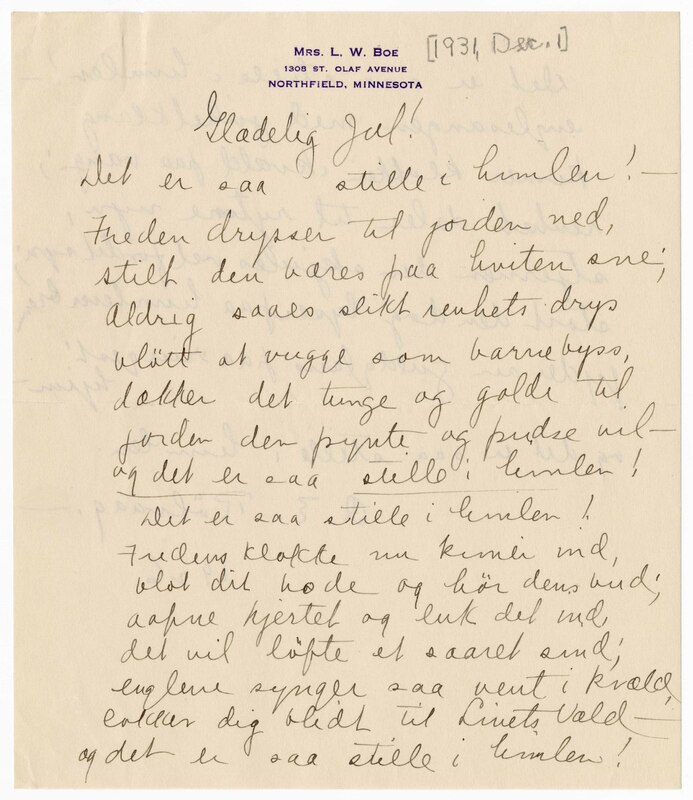 MRS. L. W. BOE
1308 ST. OLAF AVENUE
NORTHFIELD, MINNESOTA
[1931, Dec. 1]
Glædelig Jul!
Det er saa stille i himlen! —
Freden drysser til jorden ned,
stilt den bæres paa hviten sne;
Aldrig saaes slikt renhets drys
bløtt at vugge som barnebyss,
dækker det tunge og golde til
jorden den pynte og pudse vil —
og det er saa stille i himlen!
Det er saa stille i himlen!
Fredens klokke nu kimer ind,
blot dit hode og hör dens bud;
aapne hjertet og luk det ind,
det vil löfte et saaret sind;
englene synger saa vent i kvæld,
lokker dig blidt til Livets Væld —
og det er saa stille i himlen!